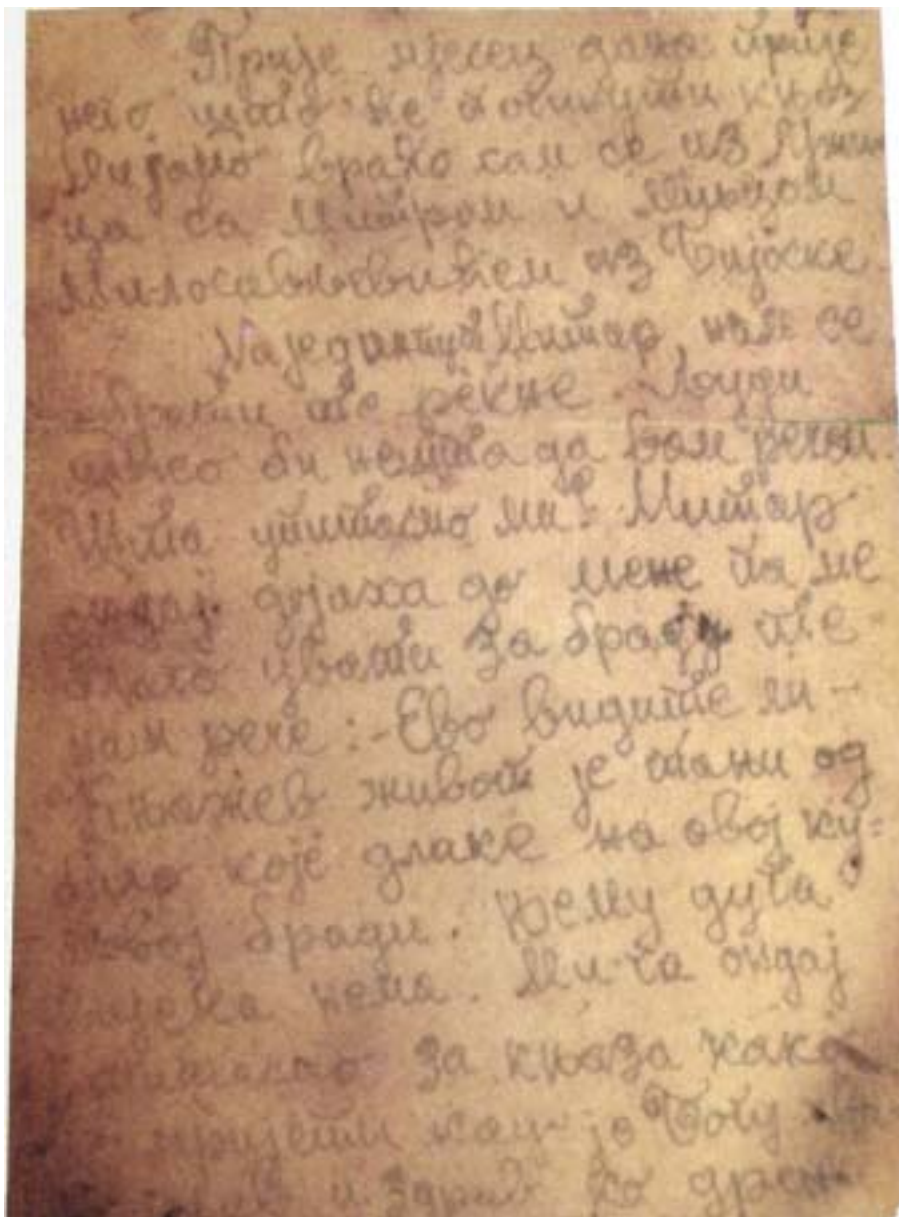 Прије мјесец дана прије
него што ће погинути књаз
Милано враћо сам се из Ужи
ца са Митром и
Милосављевићем из Бијоске.
Уједанпут Митар, наже се
обрати те рекне. Људи
шћео би нешта да вам речем.
Шта упитасмо ми? Митар
ондај дојаха до мене па ме
благо увати за браду те
нам рече: - Ево видите ли -
Књажев живот је тањи од
било које длаке на овој ку=
повој бради. Њему дуга
вијека нема. Ми га ондај
за књаза како
Богу
и здрав ко дрен